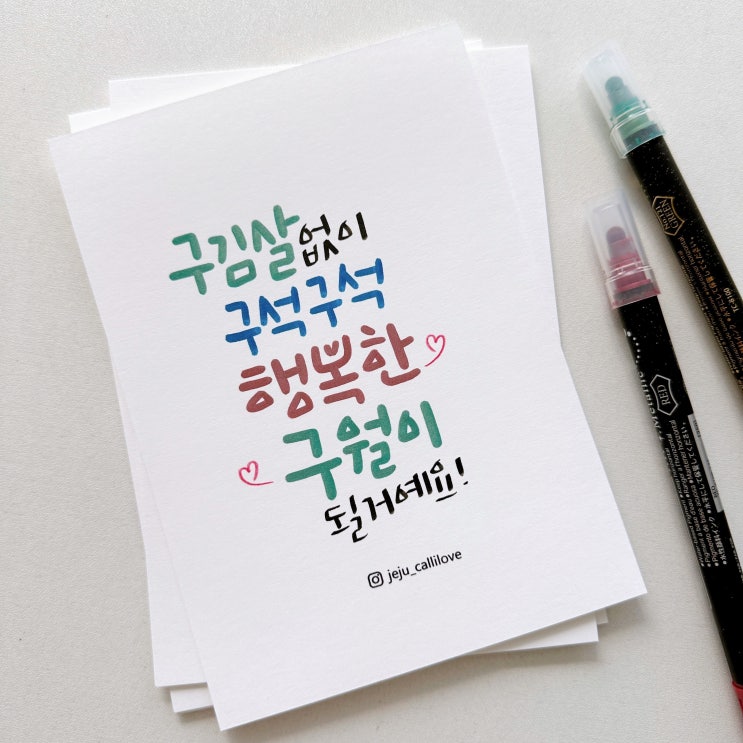 구김살 없이
구석구석
행복한
구월이
될거예요!
jeju_callilove
GREEN
TC-8100
RED
Metallic